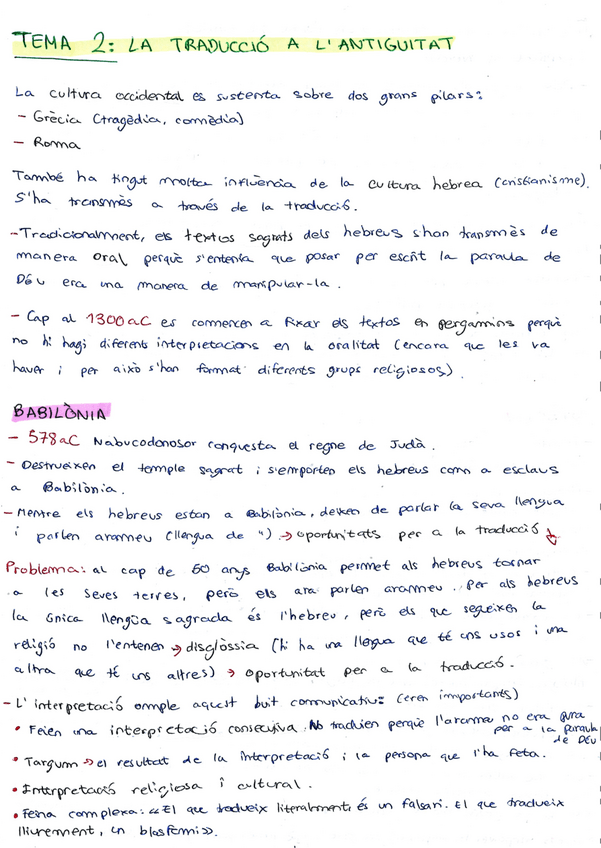 TEMA 2: LA TRADUCCIÓ A L'ANTIGUITAT
La cultura occidental es sustenta sobre dos grans pilars:
- Grècia (tragèdia, comèdia)
- Roma
També ha tingut molta influència de la cultura hebrea (cristianisme).
S'ha transmès a través de la traducció.
- Tradicionalment, els textos sagrats dels hebreus s'han transmès de
manera oral perquè s'entenia que posar per escrit la paraula de
Déu era una manera de manipular-la.
- Cap al 1300 aC es comencen a fixar els textos en pergamins perquè
no hi hagi diferents interpretacions en la oralitat (encara que les va
haver i per això s'han format diferents grups religiosos).
BABILÒNIA
- 578 aC Nabucodonosor conquesta el regne de Judà.
- Destrueixen el temple sagrat i s'emporten els hebreus com a esclaus
a Babilònia.
- Mentre els hebreus estan a Babilònia, deixen de parlar la seva llengua
i parlen arameu (llengua de ") → oportunitats per a la traducció
Problema: al cap de 50 anys Babilònia permet als hebreus tornar
a les seves terres, però els ara parlen arameu. Per als hebreus
la única llengüa sagrada és l'hebreu, però els que segueixen la
religió no l'entenen → disglòssia (hi ha una llengua que té uns usos i una
altra que té uns altres) → oportunitat per a la traducció.
- L'interpretació omple aquest buit comunicatiu: (eren importants)
• Feien una interpretació consecutiva. No traduïen perquè l'arameu no era pura
per a la paraula
de Déu
• Targum → el resultat de la interpretació i la persona que l'ha feta.
• Interpretació religiosa i cultural.
• Feina complexa: «El que tradueix literalment, és un falsari. El que tradueix
lliurement, un blasfemi».